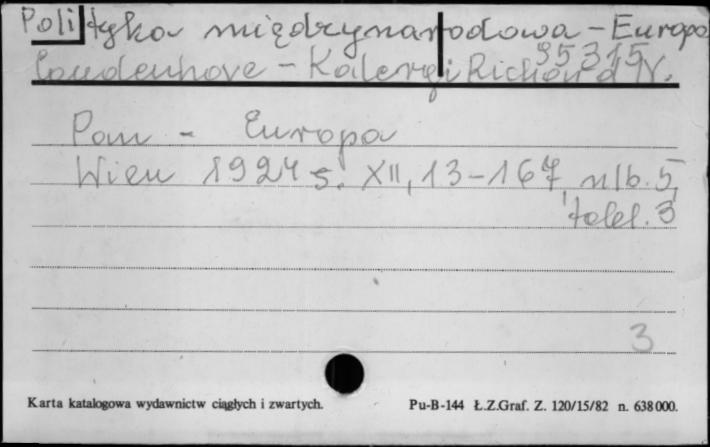 Polityka międzynarodowa - Europa
95315
Coudenhove - Kalergi Richard N.
Pan - Europa
Wien 1924 s. XII, 13-167, nlb. 5,
tabl. 3
3
Karta katalogowa wydawnictw ciągłych i zwartych.
Pu-B-144 Ł.Z.Graf. Z. 120/15/82 n. 638000.